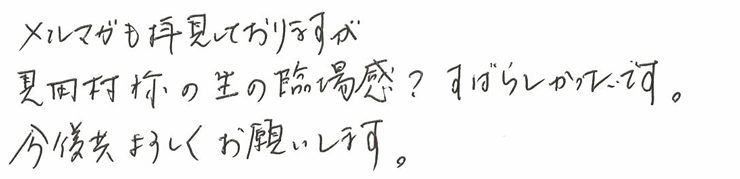 メルマガも拝見しておりますが
見田村様の生の臨場感？すばらしかったです。
今後共よろしくお願いします。